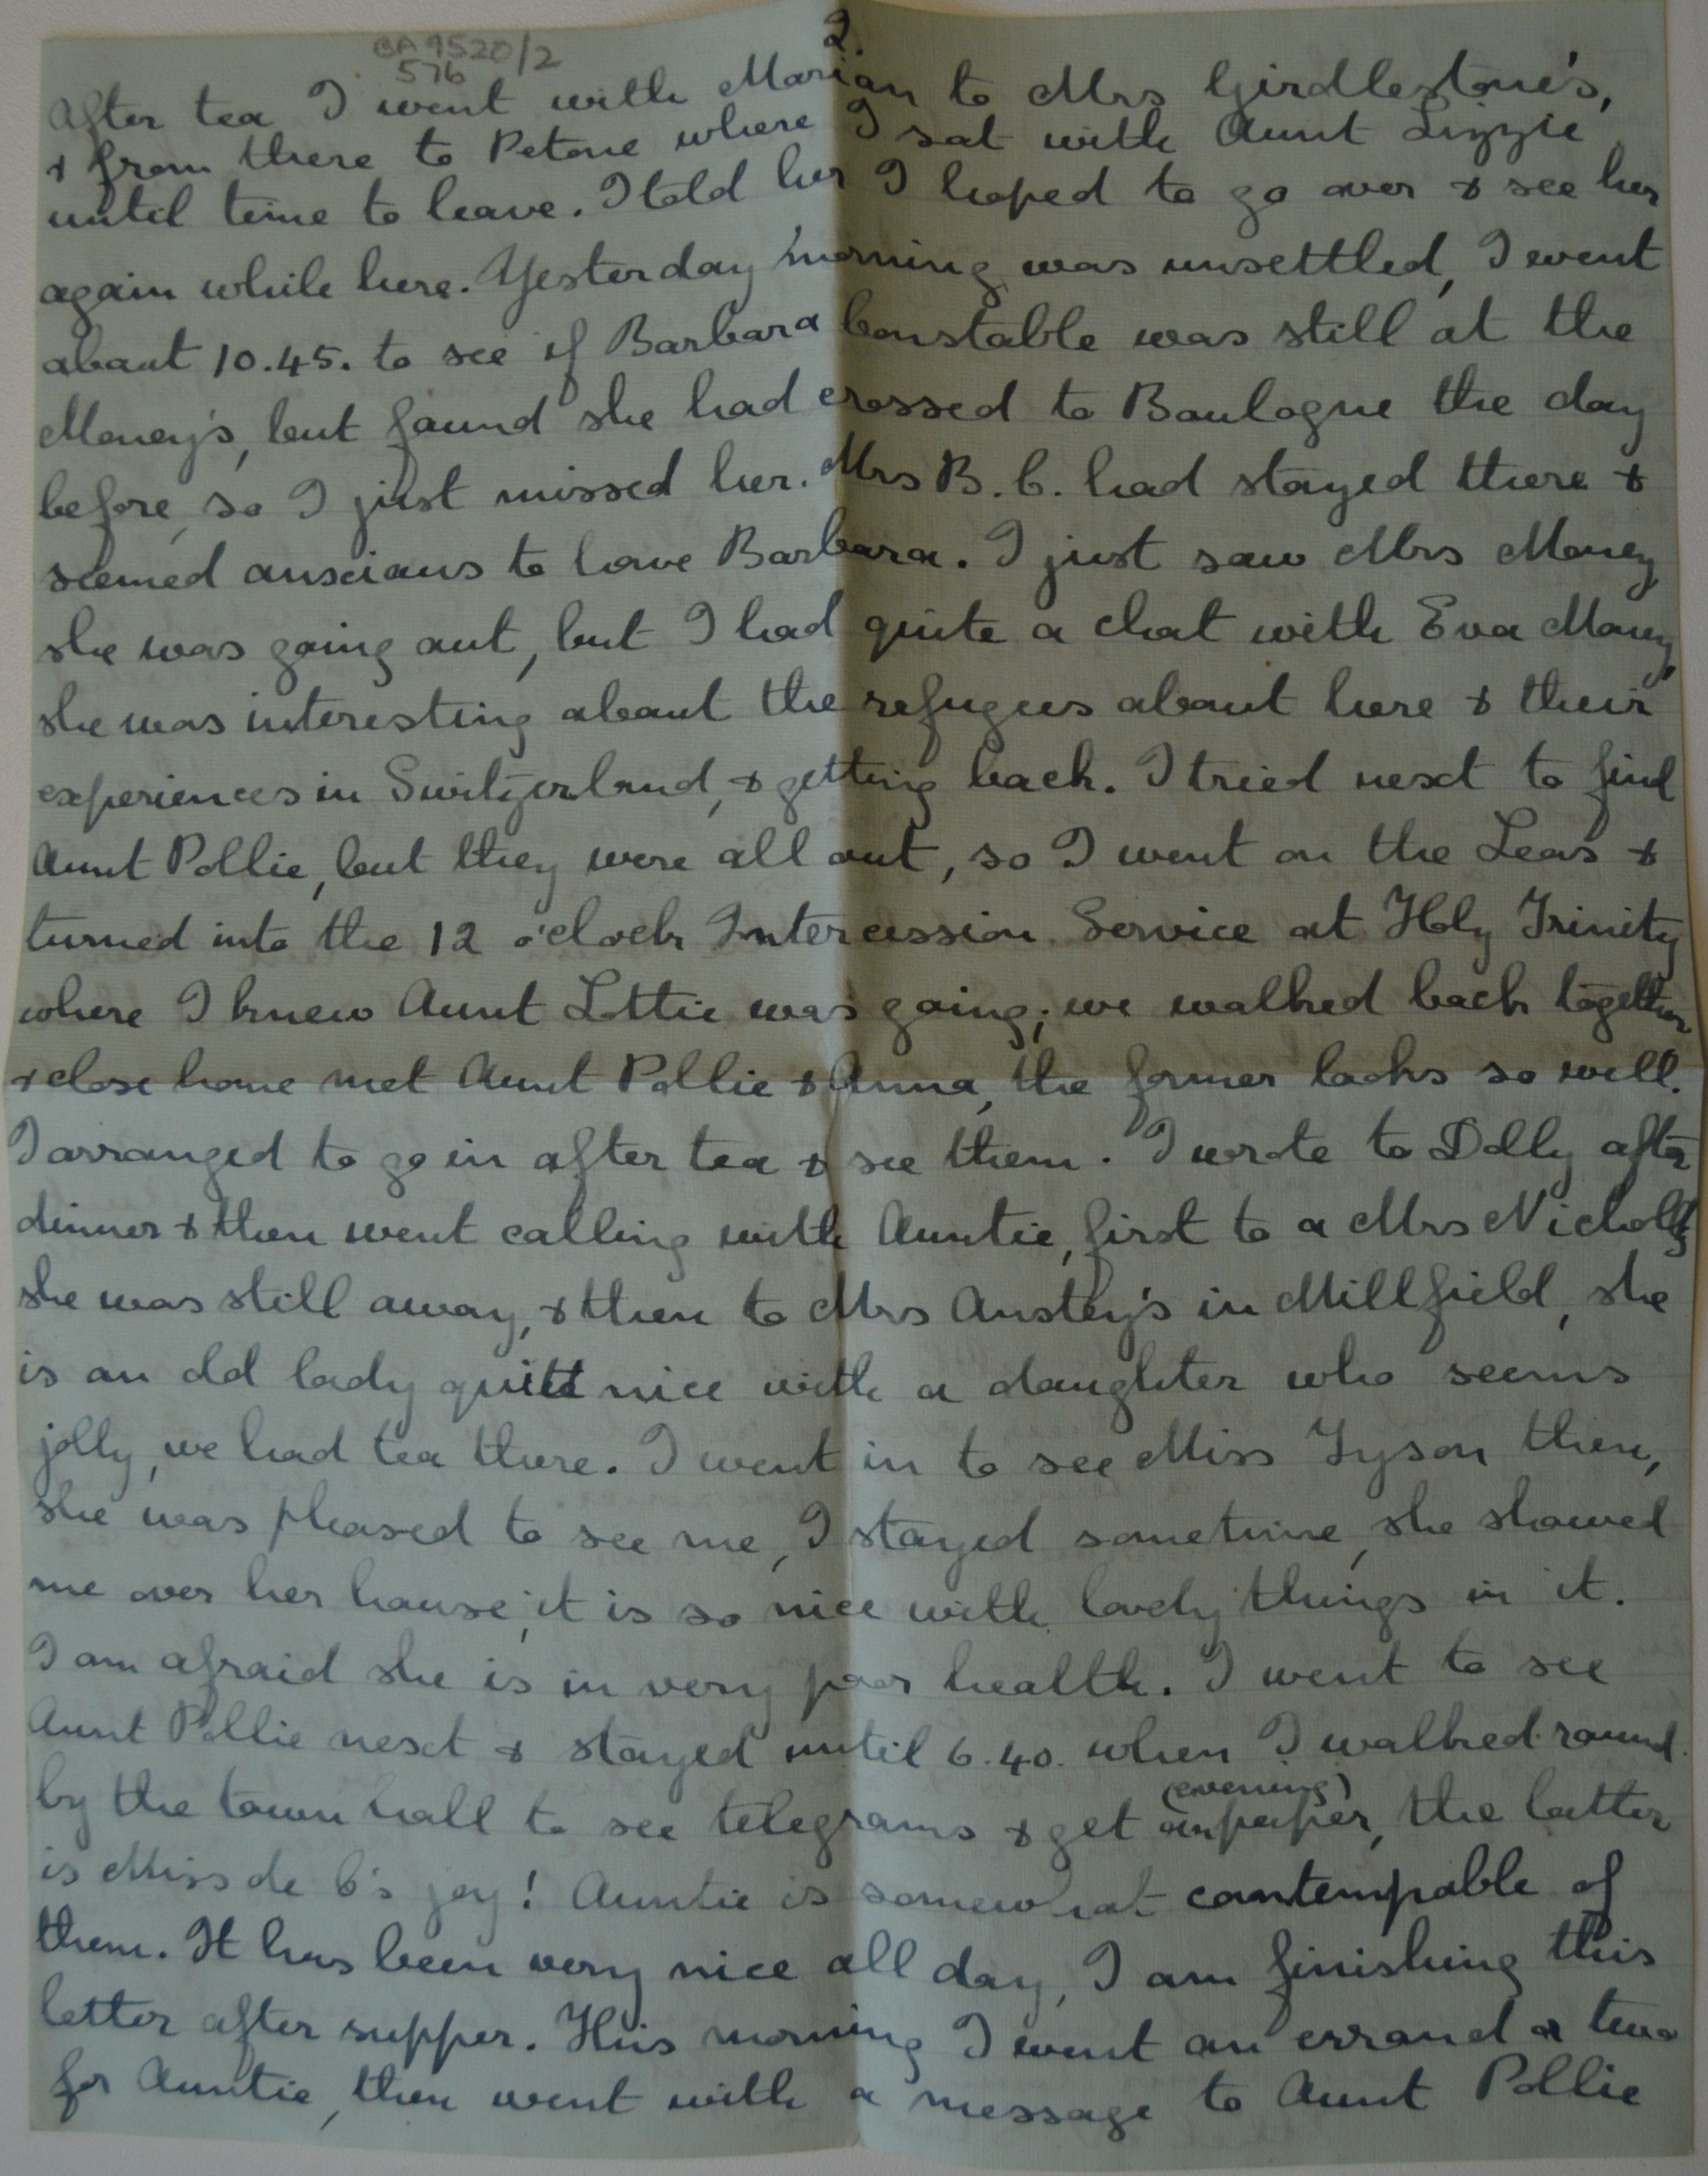 2.
BA 9520/2
576
After tea I went with Marian to Mrs Girdlestone's,
& from there to Petone where I sat with Aunt Lizzie
until time to leave. I told her I hoped to go over & see her
again while here. Yesterday morning was unsettled, I went
about 10.45. to see if Barbara Constable was still at the
Money's, but found she had crossed to Boulogne the day
before, so I just missed her. Mrs B. C. had stayed there &
seemed anxious to love Barbara. I just saw Mrs Money
she was going out, but I had quite a chat with Eva Money,
she was interesting about the refugees about here & their
experiences in Switzerland, & getting back. I tried next to find
Aunt Pollie, but they were all out, so I went on the Leas &
turned into the 12 o'clock Intercession Service at Holy Trinity
where I knew Aunt Lottie was going; we walked back together
& close home met Aunt Pollie & Anna, the former looks so well.
I arranged to go in after tea & see them. I wrote to Dolly after
dinner & then went calling with Auntie, first to a Mrs Nicholls
she was still away, & then to Mrs Anstey's in Millfield, she
is an old lady quite nice with a daughter who seems
jolly, we had tea there. I went in to see Miss Tyson then,
she was pleased to see me, I stayed sometime, she showed
me over her house, it is so nice with lovely things in it.
I am afraid she is in very poor health. I went to see
Aunt Pollie next & stayed until 6.40. when I walked round
by the town hall to see telegrams & get an (evening) paper, the latter
is Miss de C's joy! Auntie is somewhat contempable of
them. It has been very nice all day, I am finishing this
letter after supper. This morning I went an errand or two
for Auntie, then went with a message to Aunt Pollie